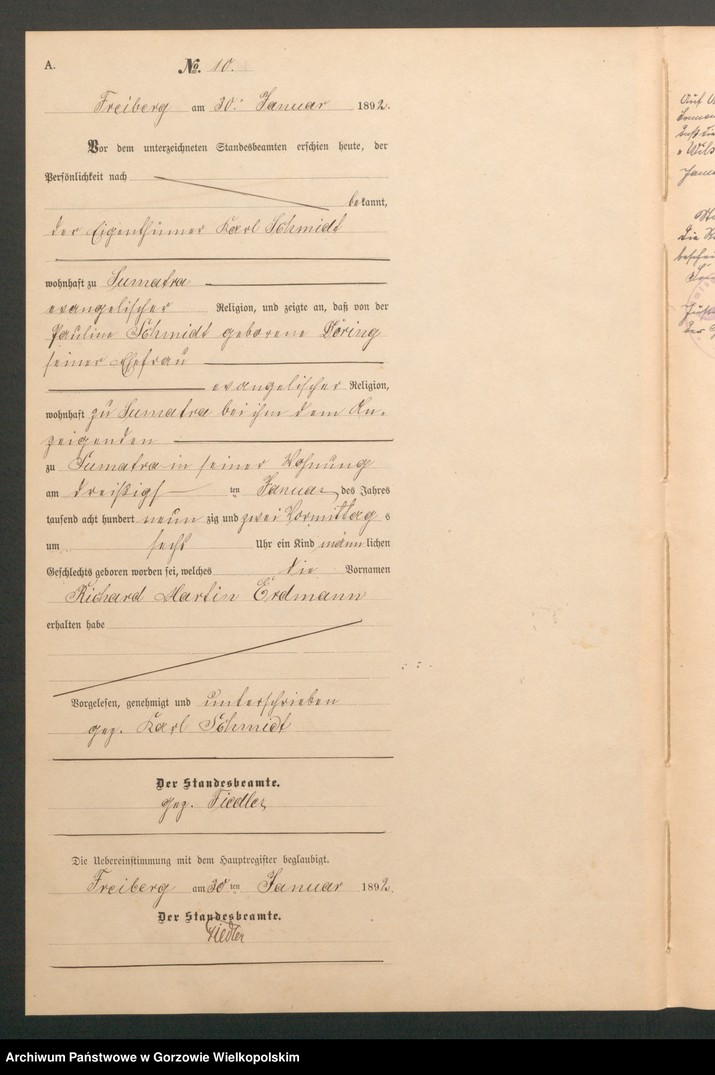 A.
No. 10.
Freiberg am 30. Januar 1892.
Vor dem unterzeichneten Standesbeamten erschien heute, der
Persönlichkeit nach
bekannt,
der Eigenthümer Karl Schmidt
wohnhaft zu Sumatra
evangelischer Religion, und zeigte an, daß von der
Pauline Schmidt geborene Döring
seiner Ehefrau
evangelischer Religion,
wohnhaft zu Sumatra bei ihm dem An-
zeigenden
zu Sumatra in seiner Wohnung
am dreißigsten Januar des Jahres
tausend acht hundert neunzig und zwei Vormittags
um sechs Uhr ein Kind männlichen
Geschlechts geboren worden sei, welches die Vornamen
Richard Martin Erdmann
erhalten habe
Vorgelesen, genehmigt und unterschrieben
gez. Karl Schmidt
Der Standesbeamte.
gez. Fiedler
Die Uebereinstimmung mit dem Hauptregister beglaubigt.
Freiberg am 30ten Januar 1892.
Der Standesbeamte.
Fiedler
Auf
Archiwum Państwowe w Gorzowie Wielkopolskim